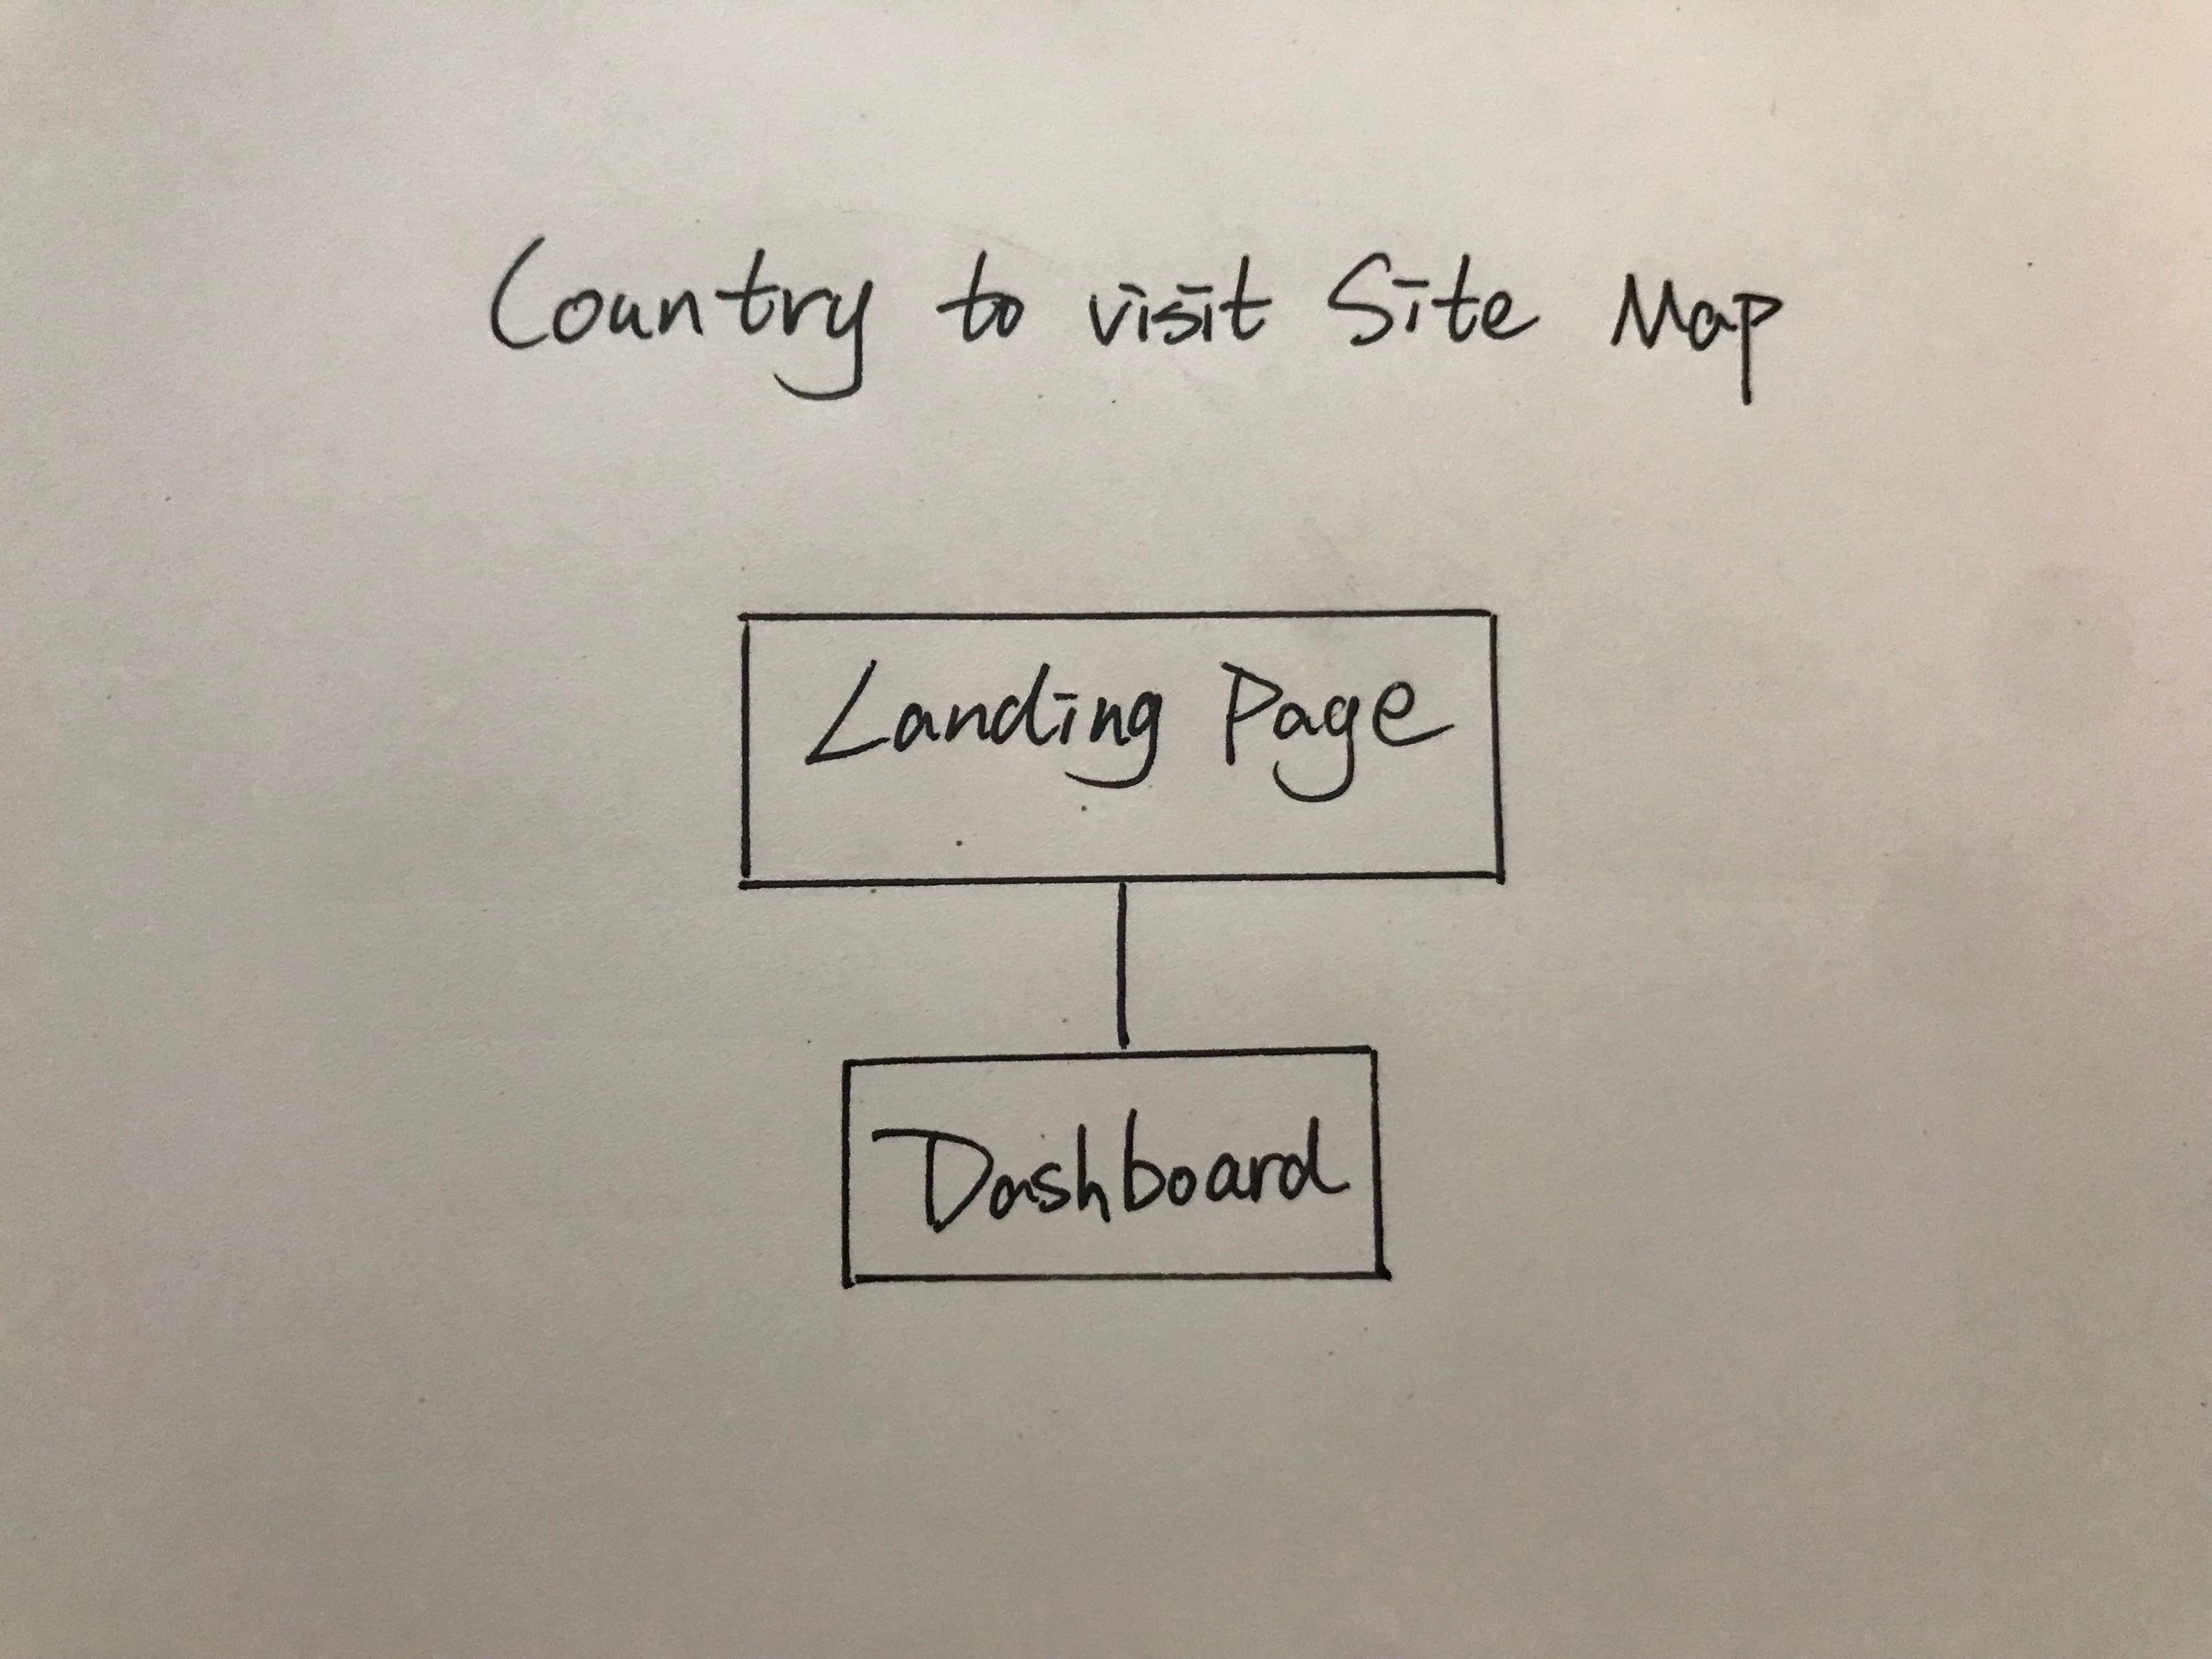 Country to visit Site Map
Landing Page
Dashboard